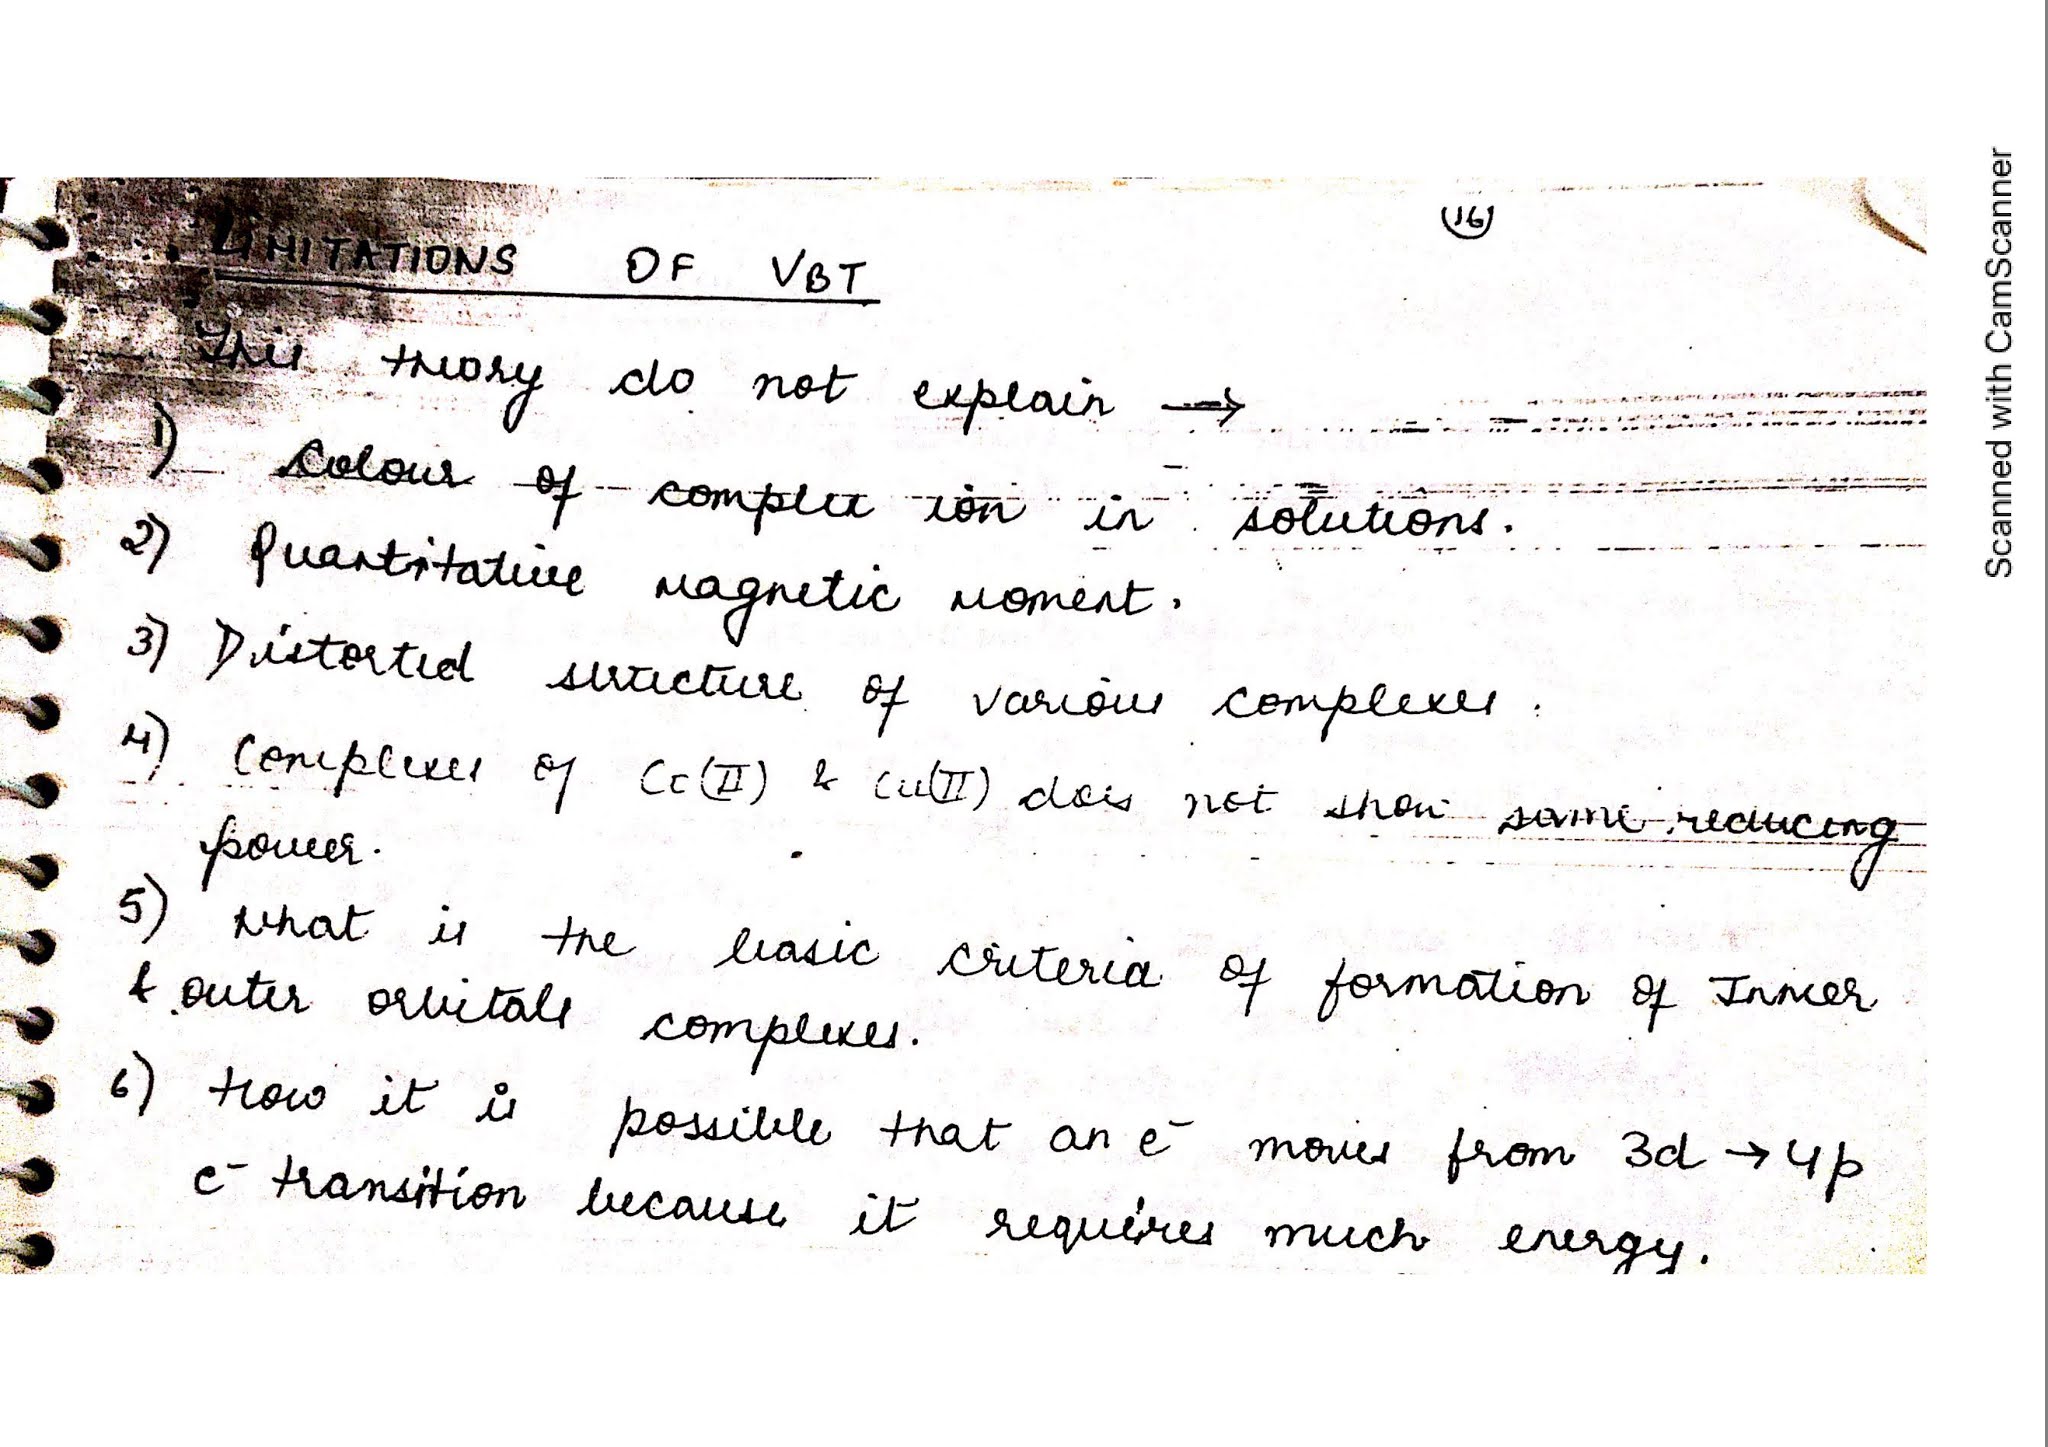 16
LIMITATIONS OF VBT
This theory do not explain →
1) Colour of complex ion in solutions.
2) Quantitative magnetic moment.
3) Distorted structure of various complexes.
4) Complexes of Co(II) & Cu(II) does not show same reducing
power.
5) What is the basic criteria of formation of Inner
& outer orbitals complexes.
6) How it is possible that an e⁻ moves from 3d → 4p
e⁻ transition because it requires much energy.
Scanned with CamScanner